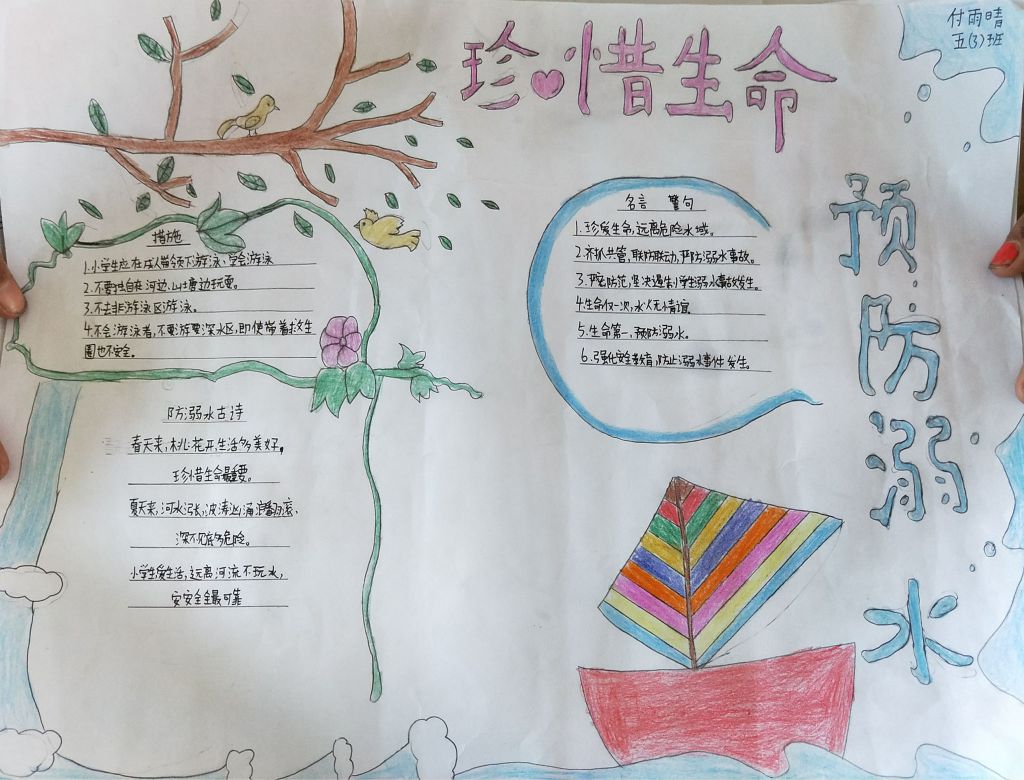 付雨晴
五(3)班
珍惜生命
预防溺水
措施
1.小学生应在成人带领下游泳、学会游泳
2.不要独自在河边、山塘边玩耍。
3.不去非游泳区游泳。
4.不会游泳者,不要游耍深水区,即使带着救生
圈也不安全。
名言 警句
1.珍爱生命,远离危险水域。
2.齐抓共管,联防联动,严防溺水事故。
3.严密防范,坚决遏制小学生溺水事故发生。
4.生命仅一次,水火无情谊
5.生命第一、预防溺水。
6.强化安全教育,防止溺水事件发生。
防溺水古诗
春天来,桃花开,生活多美好,
珍惜生命最重要。
夏天来,河水涨,波涛汹涌浪翻滚、
深不见底多危险。
小学生爱生活,远离河流不玩水,
安安全全最可靠